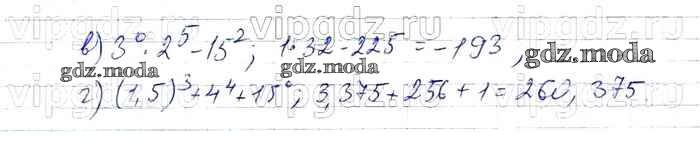 vipgdz.ru vipgdz.ru vipgdz.ru
в) 3⁰ · 2⁵ - 15²; 1 · 32 - 225 = - 193,
gdz.moda gdz.moda gdz.moda
г) (1,5)³ + 4⁴ + 15⁰; 3,375 + 256 + 1 = 260,375
vipgdz.ru vipgdz.ru vipgdz.ru